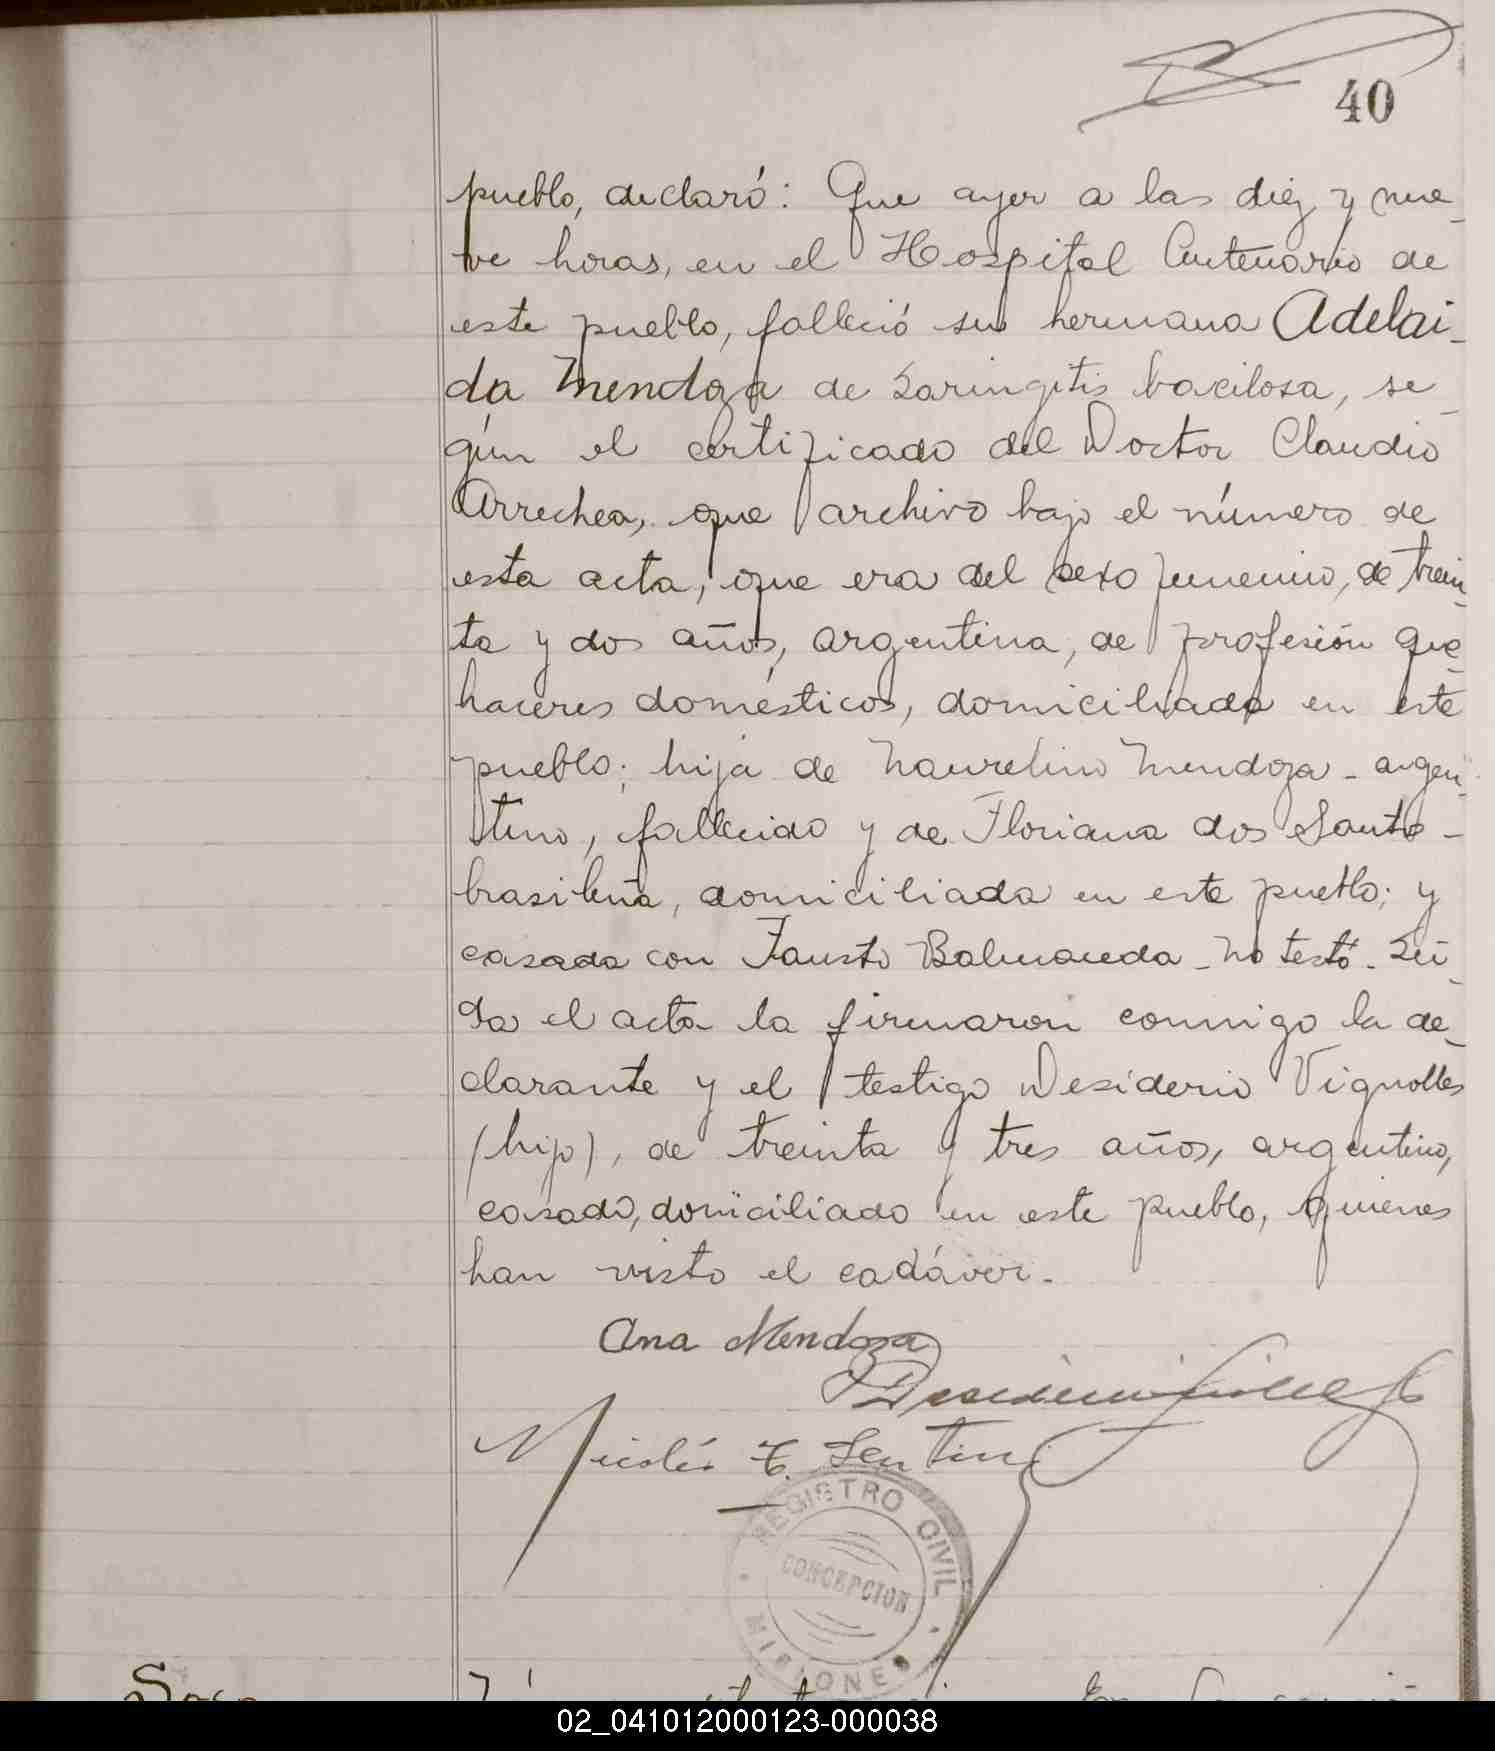 40
pueblo, declaró: Que ayer a las diez y nue-
ve horas, en el Hospital Centenario de
este pueblo, falleció su hermana Adelai-
da Mendoza de Laringitis bacilosa, se-
gún el certificado del Doctor Claudio
Arrechea, que archivo bajo el número de
esta acta, que era del sexo femenino, de trein-
ta y dos años, argentina, de profesión que-
haceres domésticos, domiciliada en este
pueblo; hija de Maurelino Mendoza - argen-
tino, fallecido y de Floriana dos Santo -
brasileña, domiciliada en este pueblo; y
casada con Fausto Balmaceda - No testó. Leí-
da el acta la firmaron conmigo la de-
clarante y el testigo Desiderio Vignolles
(hijo), de treinta y tres años, argentino,
casado, domiciliado en este pueblo, quienes
han visto el cadáver.
Ana Mendoza
Nicolás
REGISTRO CIVIL
CONCEPCION
MISIONES
Sosa
En
02_041012000123-000038